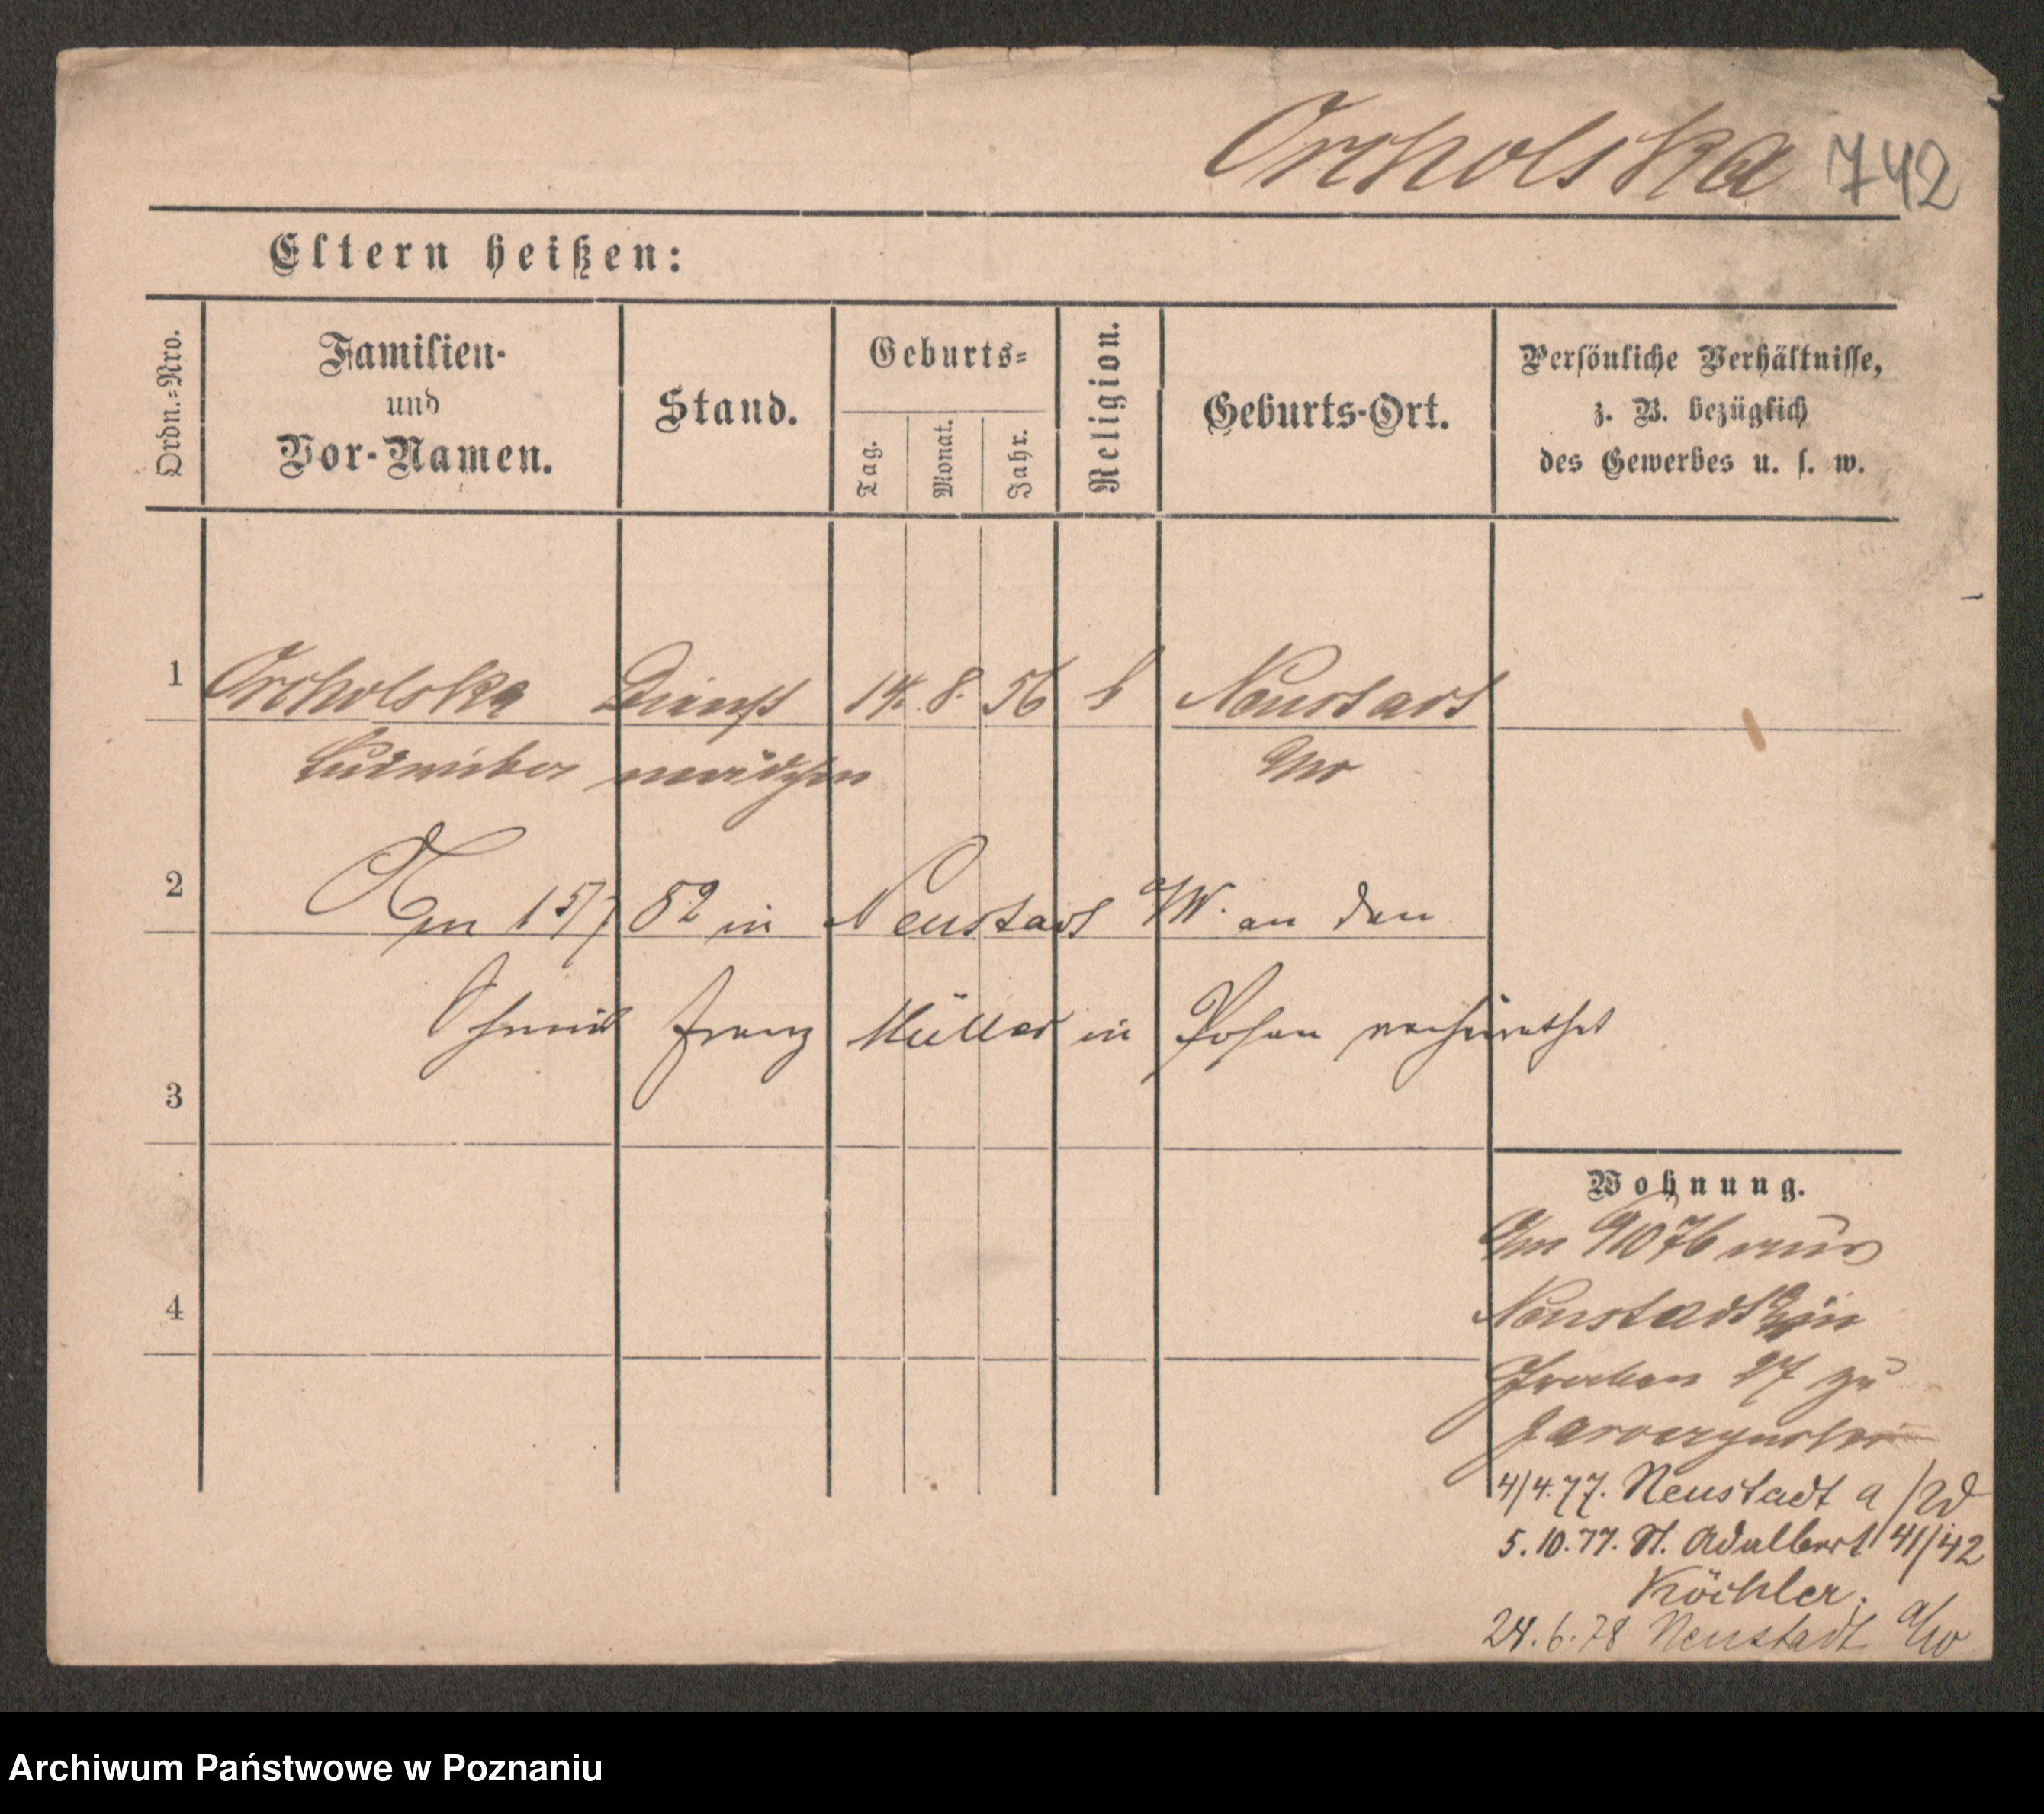 Orcholska 742
Eltern heißen:
Ordn.=Nro.
Familien-
und
Vor-Namen.
Stand.
Geburts=
Tag.
Monat.
Jahr.
Religion.
Geburts-Ort.
Persönliche Verhältnisse,
z. B. bezüglich
des Gewerbes u. s. w.
1 Orcholska Dienst 14. 8. 56 k Neustadt
Ludwika mädchen a/w
2 Am 15/7 82 in Neustadt a/W. an den
Schmid Franz Müller in Posen verheirathet
3
4
Wohnung.
Am 9/10 76 aus
Neustadt in
Graben 27 zu
4/4.77. Neustadt a/W
5.10.77. St. Adalbert 41/42
Köihler.
24.6.78 Neustadt a/w
Archiwum Państwowe w Poznaniu